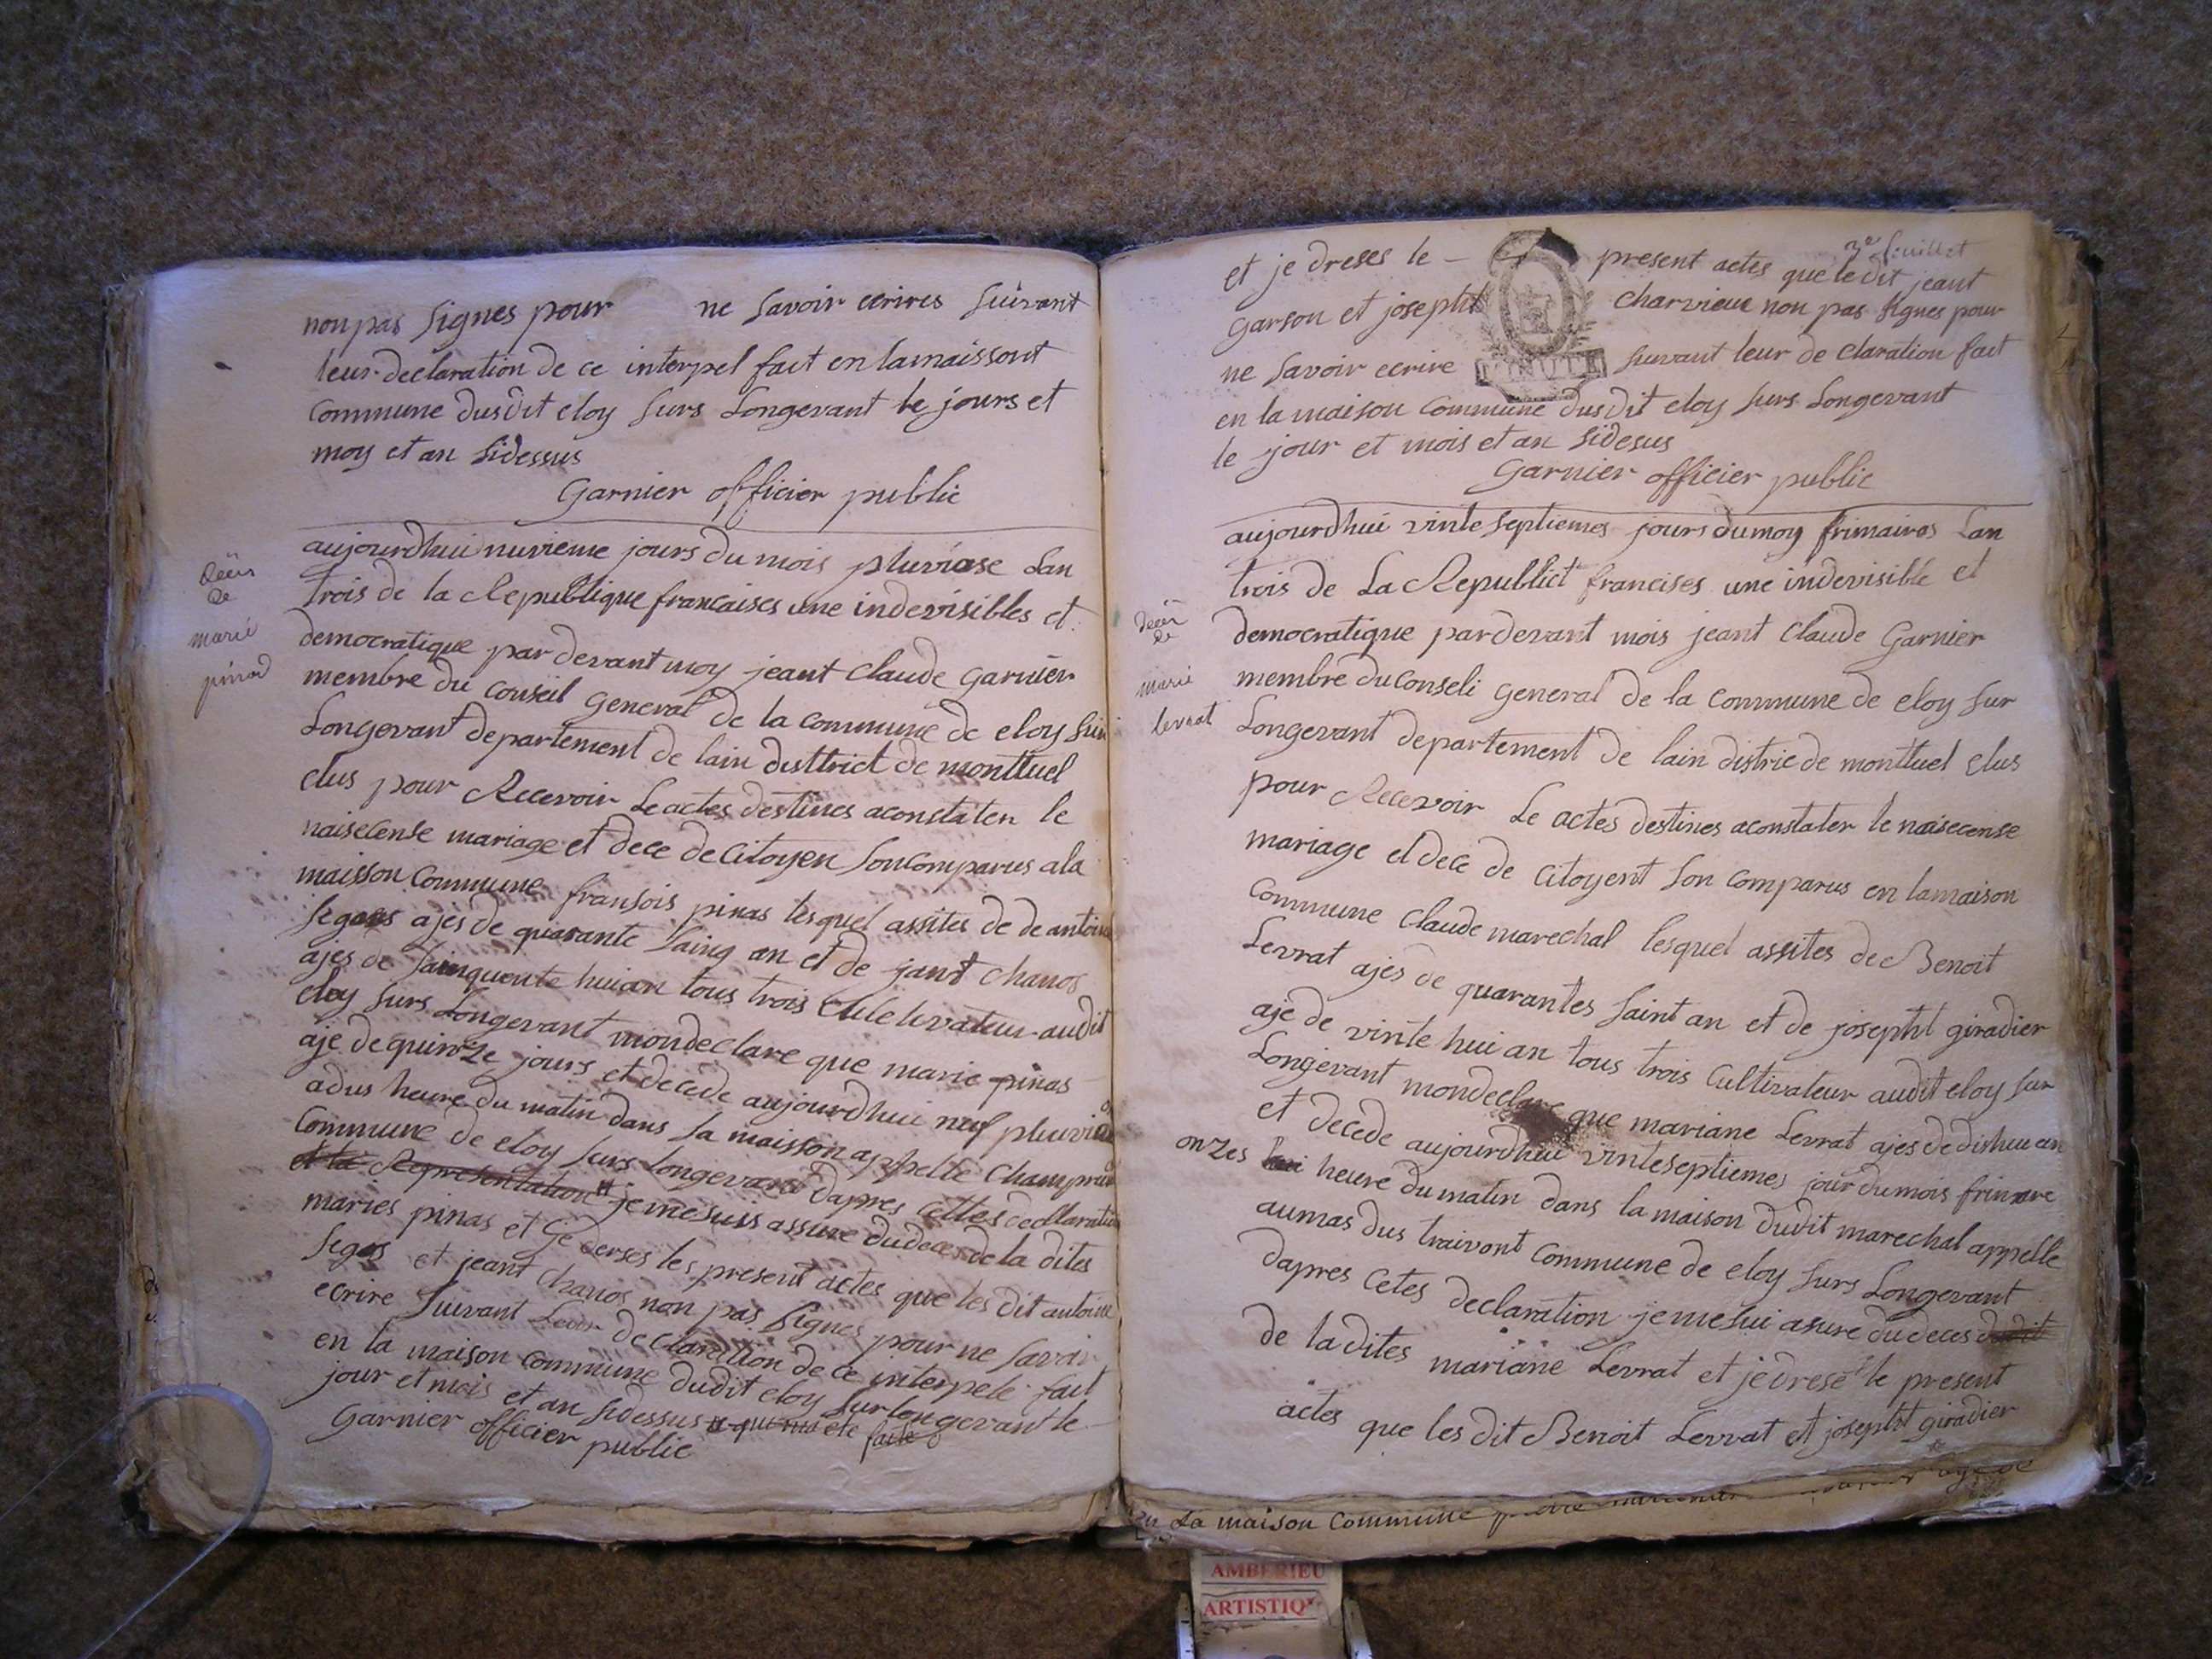 non pas signes pour ne savoir ecrires suivant
leur declaration de ce interpel fait en la maissont
commune dusdit eloy surs Longevant le jours et
moy et an sidessus
Garnier officier public
décès
de
marie
pinad
aujourdhui nuvieme jours du mois pluviose Lan
trois de la Republique francaises une indevisibles et
democratique par devant moy jeant Claude Garnier
membre du conseil general de la commune de eloy sur
Longevant departement de lain desttrict de monttuel
elus pour Recevoir Le actes destines aconstater le
naisecense mariage et dece de Citoyen son comparus a la
maisson Commune fransois pinas lesquel assites de de antoine
segaus ajes de quarante saing an et de jant chanos
ajes de sainquente hui an tous trois Cultivateur audit
eloy surs Longevant mondeclare que marie pinas
aje de quinze jours et decede aujourdhui neuf pluviose
adus heure du matin dans sa maisson appelle champ
Commune de eloy surs longevant dapres cettes declaration
et la Representation je me suis assure du deces de la dites
maries pinas et je derses les present actes que les dit antoine
segos et jeant chanos non pas signes pour ne savoir
ecrire suivant Leur declaration de ce interpele fait
en la maison commune dudit eloy sur longevant le
jour et mois et an sidessus a qui ete faite
Garnier officier public
3e feuillet
et je dreses le present actes que le dit jeant
garson et josepht charvieux non pas signes pour
ne savoir ecrire suivant leur de claration fait
MINUTE
en la maison commune dusdit eloy surs Longevant
le jour et mois et an sidesus
Garnier officier public
décès
de
marie
levrat
aujourdhui vinte septiemes jours du moy frimaires Lan
trois de La Republict francises une indevisible et
democratique par devant mois jeant Claude Garnier
membre du Conseli general de la Commune de eloy sur
Longevant departement de lain distric de monttuel elus
pour Recevoir Le actes destines aconstater le naisecense
mariage et dece de Citoyent son comparus en lamaison
commune Claude marechal lesquel assites de Benoit
Levrat ajes de quarantes saint an et de josepht giradier
aje de vinte hui an tous trois Cultivateur audit eloy sur
Longevant mondeclare que mariane Levrat ajes de dishui an
et decede aujourdhui vinteseptiemes jour du mois frimare
onzes hui heure du matin dans la maison dudit marechal appelle
aumas dus traivont Commune de eloy surs Longevant
dapres Cetes declaration je me sui asure du deces dudit
de la dites mariane Levrat et je drese le present
actes que les dit Benoit Levrat et josepht giradier
en La maison Commune
AMBERIEU
ARTISTIQ